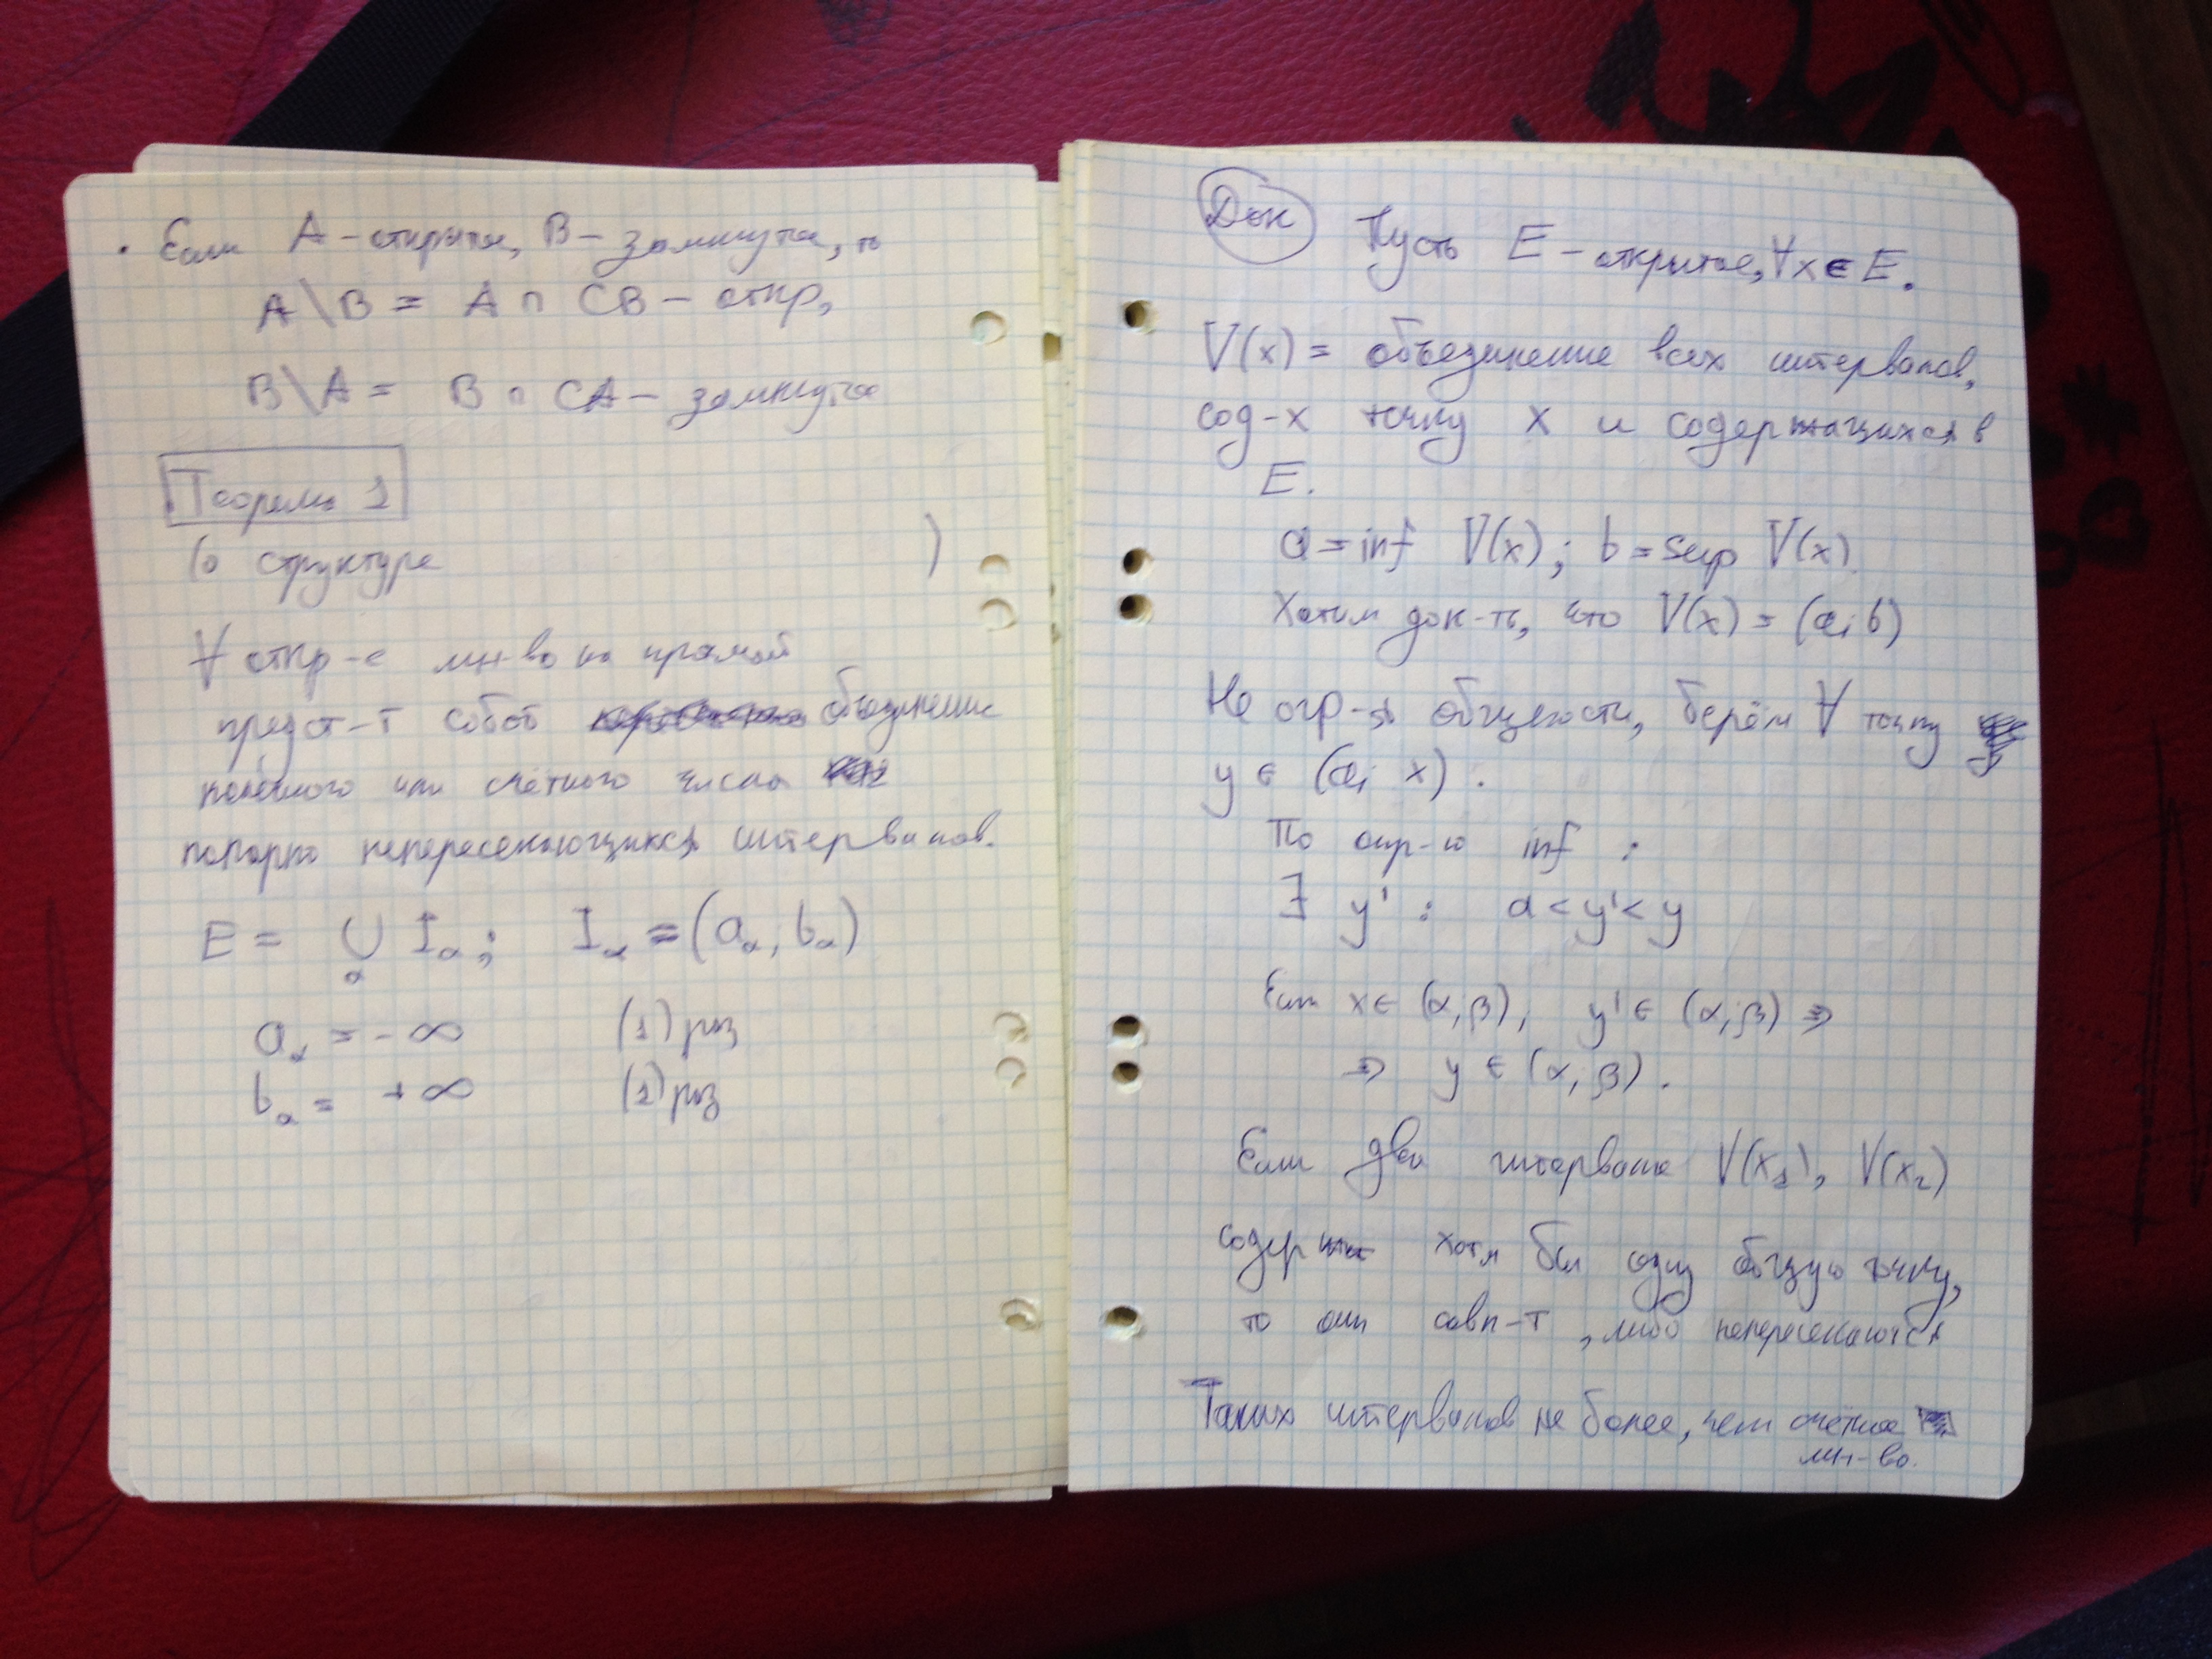 · Если A – открытое, B – замкнутое, то
A \ B = A ∩ CB – откр,
B \ A = B ∩ CA – замкнутое
Теорема 1
(о структуре )
∀ откр-е мн-во на прямой
предст-т собой объединение
конечного или счётного числа
попарно непересекающихся интервалов.
E = ∪ I_α ; I_α = (a_α, b_α)
α
a_α = - ∞ (1) раз
b_α = + ∞ (1) раз
Док Пусть E – открытое, ∀x ∈ E.
V(x) = объединение всех интервалов,
сод-х точку x и содержащихся в
E.
a = inf V(x) ; b = sup V(x)
Хотим док-ть, что V(x) = (a; b)
Не огр-я общности, берём ∀ точку
y ∈ (a; x) .
По опр-ю inf :
∃ y' : a < y' < y
Если x ∈ (α; β), y' ∈ (α; β) ⇒
⇒ y ∈ (α; β) .
Если два интервала V(x₁), V(x₂)
содерж хотя бы одну общую точку,
то они совп-т , либо непересекаются
Таких интервалов не более, чем счётное
мн-во.